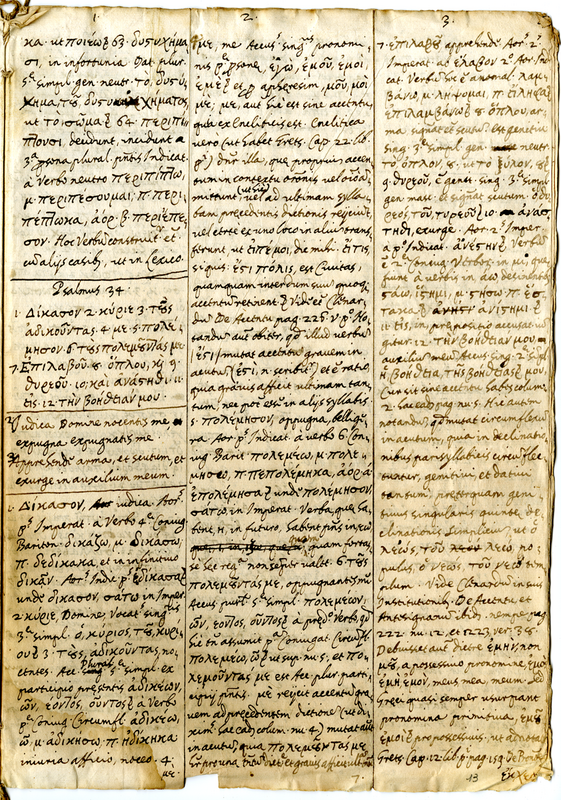 1.
κα. ut ποιέω 63. δυστυχήμα
σι, in infortunia Dat. plur.
5ae simpl. gen. neutr. τὸ δυσύ
χημα, τῦ δυσυχήματος
ut τὸ σῶμα 64. περιπί
πτουσι. decidunt, incidunt a
3a persona plural. pntis Indicat.
a Verbo neutro περιπίπτω,
μ. περιπεσουμαι, π. περι
πέπτωκα, ἀορ. β. περιέπε
σον. Hoc Verbum construitr et
cum alijs casib, ut in Lexico.
Psalmus 34
1. Δίκασον 2. κύριε 3. τȣ̀ς
ἀδικοῦντας. 4. με. 5. πολέ
μησον 6. τȣ̀ς πολεμȣντας με
7. Ἐπιλαβοῦ 8. ὅπλου, κὶ 9.
θυρεοῦ. 10. καὶ ἀνάστηθι 11.
εἰς 12. τὴν βοήθειάν μου.
Iudica Domine nocentes me
expugna expugnantes me.
Apprehende arma, et scutum, et
exurge in auxilium meum.
1. Δίκασον, iudica. Aor.
pi Imperat. a Verbo 4ae Coniug.
Bariton. δικάζω, μ. δικάσω,
π. δεδίκακα, et in infinitivo
δικᾶν. Aor. Indic. pi ἐδίκασα
unde δικασον, σάτω in Imper.
2. κύριε, Domine, Vocat. singus
3ae simpl. ὁ κύριος, τοῦ κυρί
ου 3. τȣς, ἀδικουντας no
centes. Acc. Pluralis 5ae simpl. ex
participio presentis ἀδικέων,
ῶν, έοντος, οῦντος a Verbo
pae Coniug. Circumfl. ἀδικέω,
ῶ, μ. ἀδικήσω π. ἠδίκηκα
iniuria afficio, noceo. 4.
με.
2.
με, me Accus. singus pronomi
nis pae personae, ἐγὼ, ἐμοῦ, ἐμοὶ,
ἐμὲ et per apheresim, μοῦ, μοὶ
μὲ; με, aut hic est sine accentu,
quia ex Encliticis est. Enclitica
vero (ut habet Grets. Cap. 22. lib.
pi) dnr illa, que proprium accen
sum in contextu orationis vel omnino
mittunt, vel ad ultimam sylla
bam precedentis dictionis rejiciunt,
vel certe ex uno loco in alium trans
ferunt ut εἰπέ μοι, dic mihi. εἴ τις,
siquis. ἐστὶ πόλις, est Civitas,
quamquam interdum suum quoque
accentum retinent. Vide Clenar
dum De Accentu pag. 225. v. pi. No
tandum aut obiter, qd illud verbum
(ἐστὶ) mutat accentum gravem in
acutum (ἐστί, n. scribitr) et est ratio,
quia gravis afficit ultimam tan
tum, nec pot esse in alijs syllabis
5. πολέμησον, oppugna, bellige
ra. Aor. pi. Indicat. a verbo 6. Con
iug. Barit. πολεμέω, μ. πολε
μήσω, π. πεπολέμηκα, ἀορ. ά
ἐπολέμησα unde πολέμησον,
σάτω in Imperat. Verba, que ha
bent, η, in futuro, habent pns in εω
quam fortas
se hec regula non semper valet. 6. τȣ̀ς
πολεμȣντας με, oppugnantes me.
Accus. pluri 5ae simpl. πολεμέων,
ῶν, έοντος, οῦντος a predo Verbo, qd
hic tn assumit pae Coniugat. Circumfl.
πολεμέω, ῶ ut sup. nu. 5. et πο
λεμοῦντας με est Acc. plur. parti
cipij pntis. με rejecit accentum gra
vem ad precedentem dictionem (ut di
xim. hac ead. colum. nu. 4) mutat aut
in acutum, quia πολεμȣντας με
7.
3.
7. ἐπιλαβοῦ apprehende Aor. 2.
Imperat. ut ἔλαβον 2. Aor. Indi
cat. Verbum hoc est anomal. λαμ
βάνω, μ. λήψομαι, π. εἴληφα
ἐπιλαμβάνω 8. ὅπλου, ar
ma signat et scutum. est genetivi
sing. 3ae simpl. gen.
τὸ ὅπλον, ȣ. ut τὸ ξύλον, ȣ
9. θυρεοῦ, est genet. sing. 3ae simpl.
gen. masc. et signat scutum. ὁ θυ
ρεὸς τοῦ θυρεοῦ 10. ἀνάσ
τηθι, exurge. Aor. 2. Imper.
a po Indicat. ἀνέστην Verbum
est 2ae Coniug. Verbor. in μι, que
fiunt a verbis in άω desinentib
στάω, ἵστημι, μ. στήσω π. ἕσ
τακα ἀνίστημι, 11.
εἰς, in, prepositio accusat. iun
gitur. 12. τὴν βοήθειάν μου.
auxilium meum Accus. sing. 2ae simpl.
ἡ βοήθεια, τῆς βοηθείας μου.
Cur sit sine accentu habes colum.
2. hac ead. pag. nu. 5. Hic autem
notandum, qd mutat circumflexum
in acutum, quia in declinatio
nibus parisyllabicis circumflec
tuntur, genitivi, et dativi
tantum, preterquam geni
tivus singularis quinte, de
clinationis Simplicium ut ὁ
λεὼς, τοῦ λεὼ, po
pulus, ὁ νεὼς, τοῦ νεὼ tem
plum. Vide Clenardum in suis
Institutionib. De Accentu et
Antesignanum ibid. nempe pag.
222. nu. 12. et 1223. ver. 38.
Debuisset aut dicere ἐμὴν, non
μȣ, a possessivo pronomine, ἐμὸς
ἐμὴ, ἐμὸν, meus, mea, meum. sed
greci quasi semper usurpant
pronomina primitiva, ἐμȣ
ἐμοὶ pro possessivis. ut adnotat
Grets. Cap. 12. lib. pi. pag. 159. Ver.
13